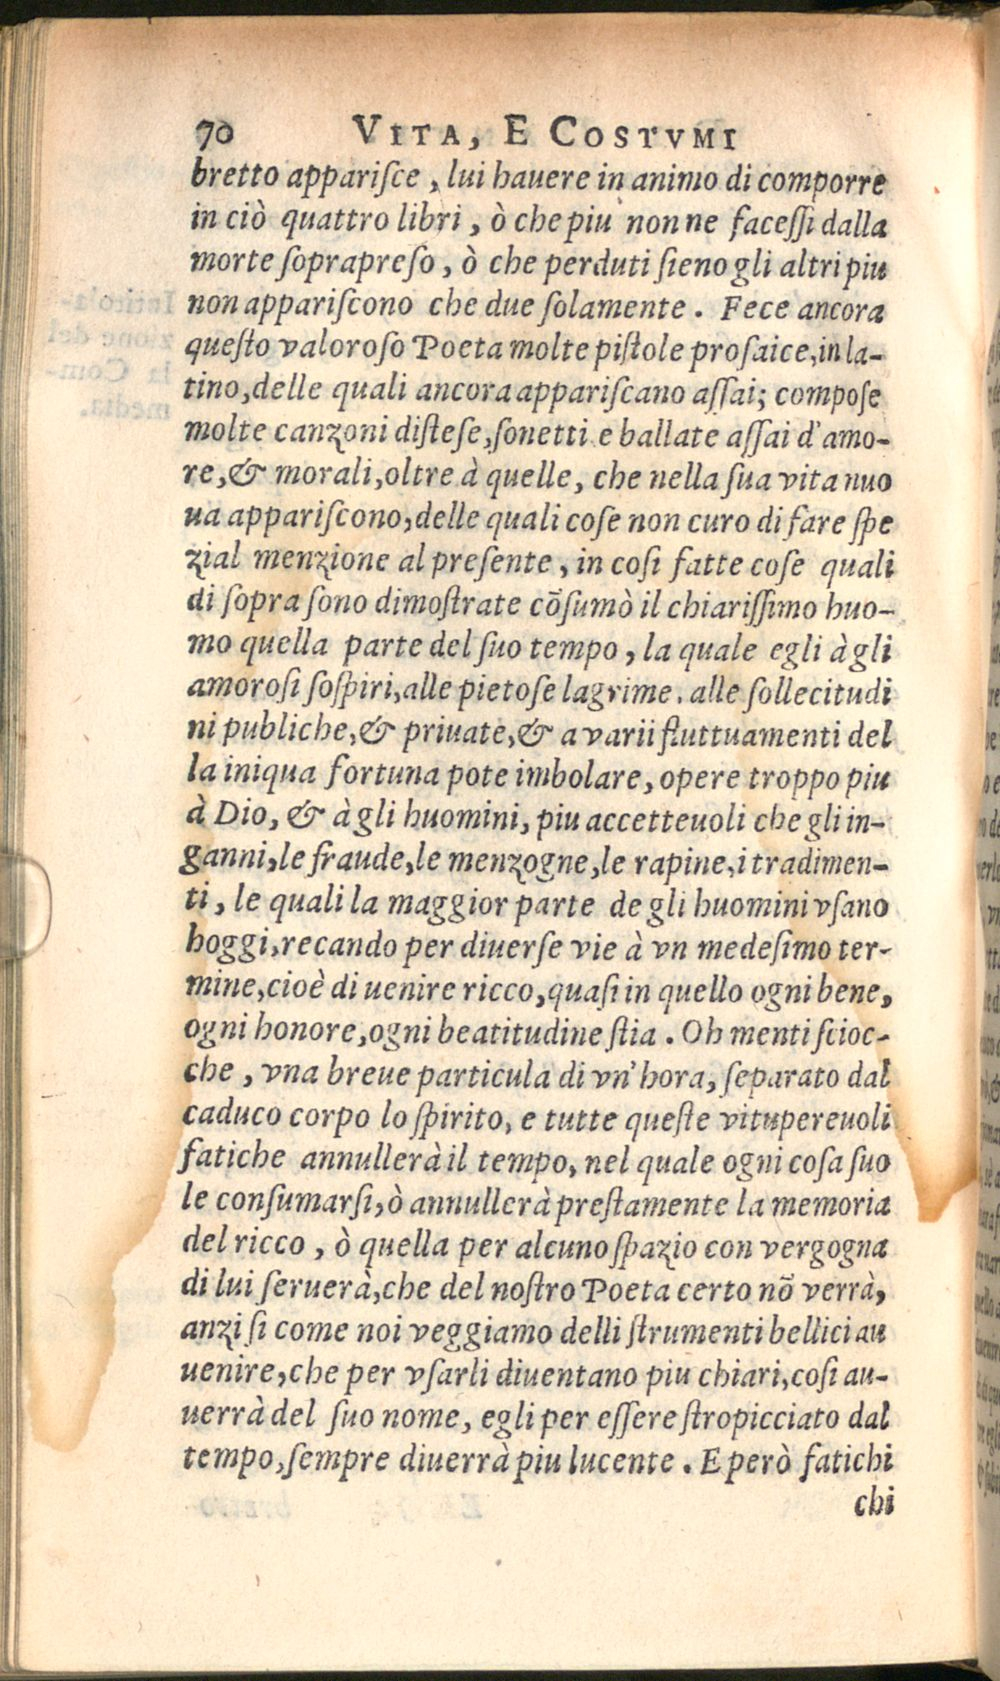 70 VITA, E COSTVMI
bretto appariſce, lui hauere in animo di comporre
in ciò quattro libri, ò che piu non ne faceſſi dalla
morte ſoprapreſo, ò che perduti ſieno gli altri piu
non appariſcono che due ſolamente. Fece ancora
queſto valoroſo Poeta molte piſtole proſaice, in la-
tino, delle quali ancora appariſcano aſſai; compoſe
molte canzoni diſteſe, ſonetti e ballate aſſai d'amo-
re, & morali, oltre à quelle, che nella ſua vita nuo
ua appariſcono, delle quali coſe non curo di fare ſpe
zial menzione al preſente, in coſi fatte coſe quali
di ſopra ſono dimoſtrate cõſumò il chiariſſimo huo-
mo quella parte del ſuo tempo, la quale egli à gli
amoroſi ſoſpiri, alle pietoſe lagrime. alle ſollecitudi
ni publiche, & priuate, & a varii fluttuamenti del
la iniqua fortuna pote imbolare, opere troppo piu
à Dio, & à gli huomini, piu accetteuoli che gli in-
ganni, le fraude, le menzogne, le rapine, i tradimen-
ti, le quali la maggior parte de gli huomini vſano
hoggi, recando per diuerſe vie à vn medeſimo ter-
mine, cioè di uenire ricco, quaſi in quello ogni bene,
ogni honore, ogni beatitudine ſtia. Oh menti ſcioc-
che, vna breue particula di vn'hora, ſeparato dal
caduco corpo lo ſpirito, e tutte queſte vitupereuoli
fatiche annullerà il tempo, nel quale ogni coſa ſuo
le conſumarſi, ò annullerà preſtamente la memoria
del ricco, ò quella per alcuno ſpazio con vergogna
di lui ſeruerà, che del noſtro Poeta certo nõ verrà,
anzi ſi come noi veggiamo delli ſtrumenti bellici au
uenire, che per vſarli diuentano piu chiari, coſi au-
uerrà del ſuo nome, egli per eſſere ſtropicciato dal
tempo, ſempre diuerrà piu lucente. E però fatichi
chi